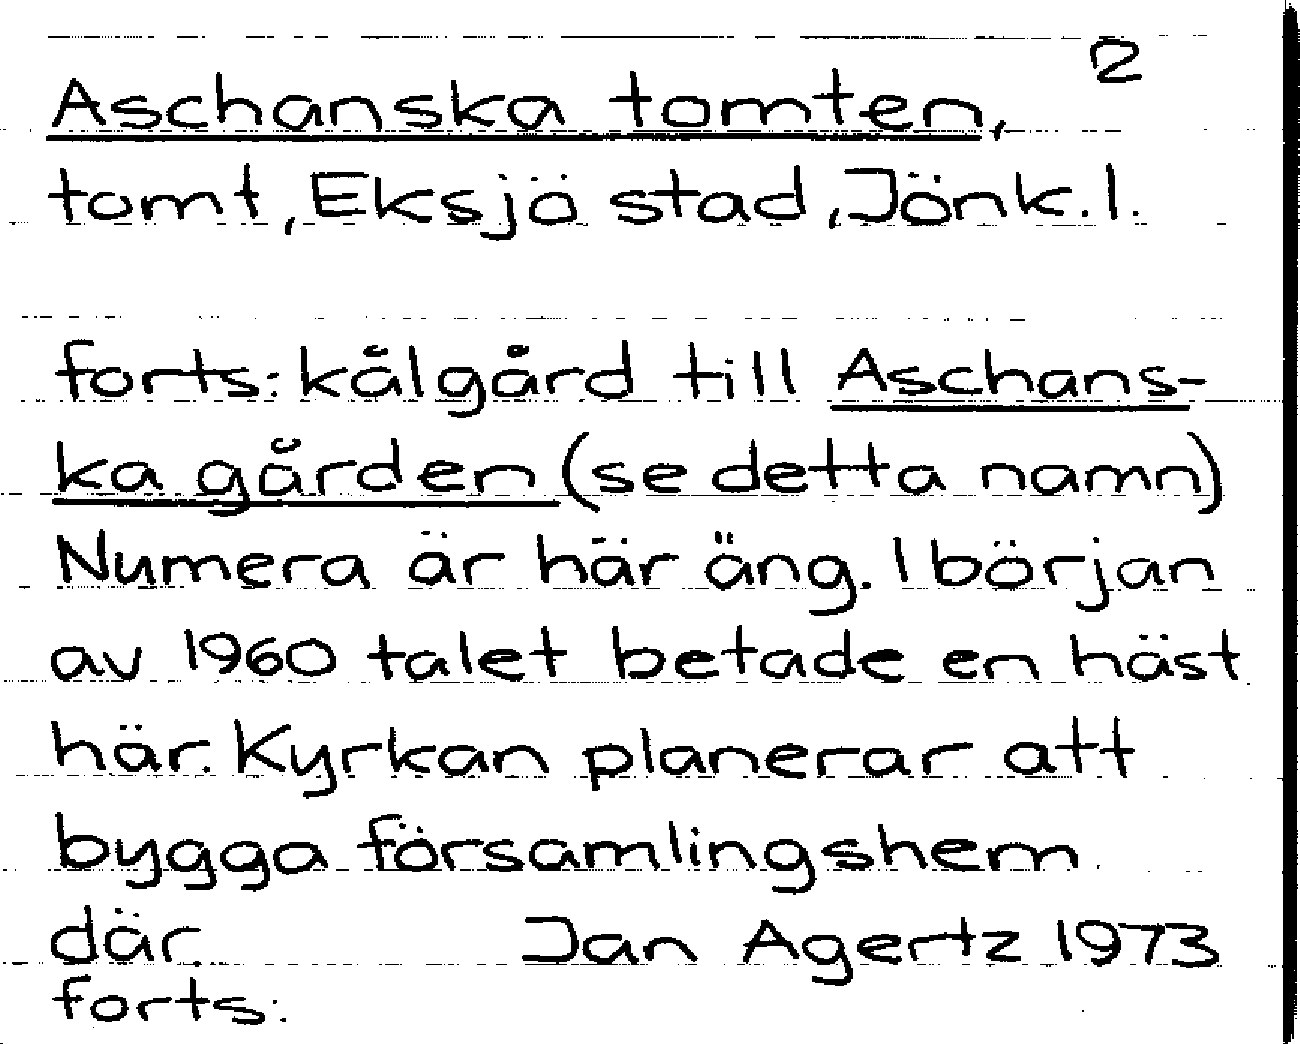 2
Aschanska tomten,
tomt, Eksjö stad, Jönk. l.
forts: kålgård till Aschans-
ka gården (se detta namn)
Numera är här äng. I början
av 1960 talet betade en häst
här. Kyrkan planerar att
bygga församlingshem
där. Jan Agertz 1973
forts: